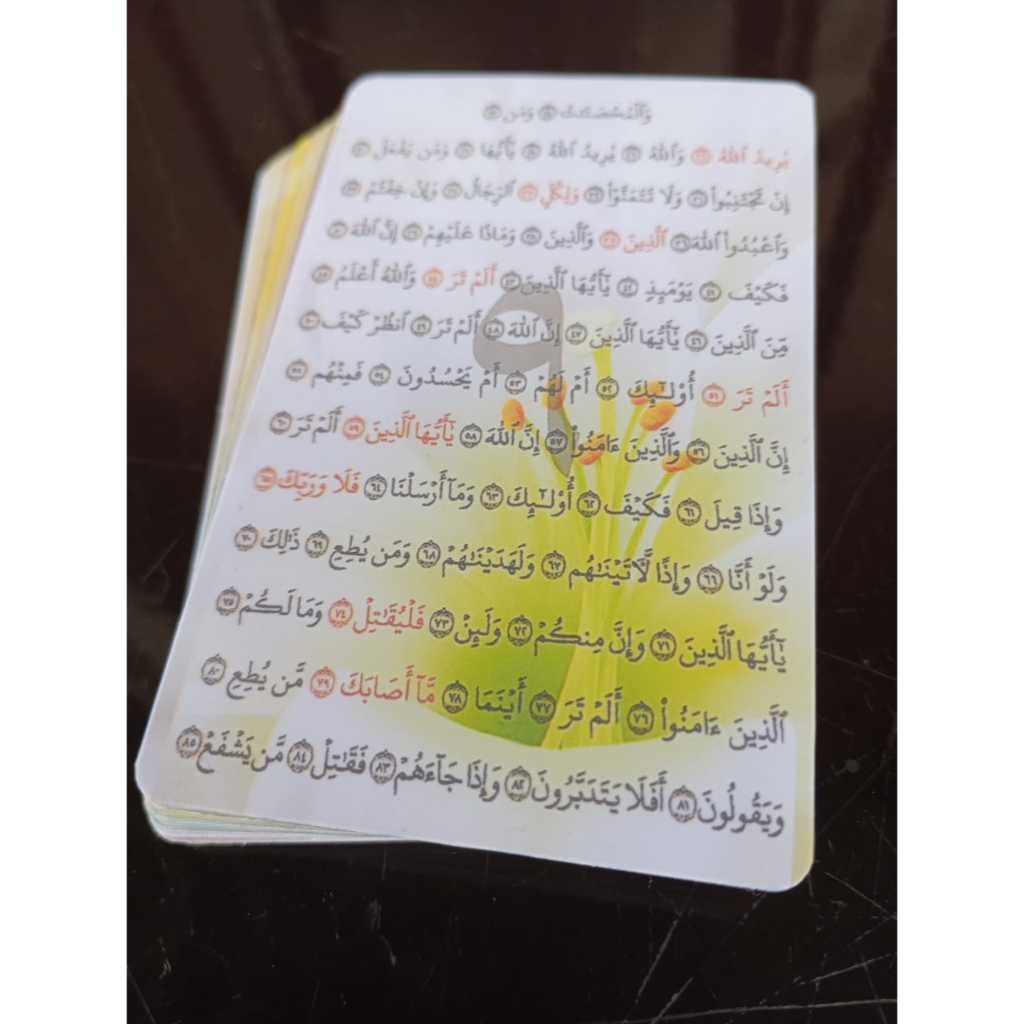 وَٱلْمُحْصَنَٰتُ ٢٤ وَمَن ٢٥
يُرِيدُ ٱللَّهُ ٢٦ وَٱللَّهُ ٢٧ يُرِيدُ ٱللَّهُ ٢٨ يَٰٓأَيُّهَا ٢٩ وَمَن يَفْعَلْ ٣٠
إِن تَجْتَنِبُوا۟ ٣١ وَلَا تَتَمَنَّوْا۟ ٣٢ وَلِكُلٍّ ٣٣ ٱلرِّجَالُ ٣٤ وَإِنْ خِفْتُمْ ٣٥
وَٱعْبُدُوا۟ ٱللَّهَ ٣٦ ٱلَّذِينَ ٣٧ وَٱلَّذِينَ ٣٨ وَمَاذَا عَلَيْهِمْ ٣٩ إِنَّ ٱللَّهَ ٤٠
فَكَيْفَ ٤١ يَوْمَئِذٍ ٤٢ يَٰٓأَيُّهَا ٱلَّذِينَ ٤٣ أَلَمْ تَرَ ٤٤ وَٱللَّهُ أَعْلَمُ ٤٥
مِّنَ ٱلَّذِينَ ٤٦ يَٰٓأَيُّهَا ٱلَّذِينَ ٤٧ إِنَّ ٱللَّهَ ٤٨ أَلَمْ تَرَ ٤٩ ٱنظُرْ كَيْفَ ٥٠
أَلَمْ تَرَ ٥١ أُو۟لَٰٓئِكَ ٥٢ أَمْ لَهُمْ ٥٣ أَمْ يَحْسُدُونَ ٥٤ فَمِنْهُم ٥٥
إِنَّ ٱلَّذِينَ ٥٦ وَٱلَّذِينَ ءَامَنُوا۟ ٥٧ إِنَّ ٱللَّهَ ٥٨ يَٰٓأَيُّهَا ٱلَّذِينَ ٥٩ أَلَمْ تَرَ ٦٠
وَإِذَا قِيلَ ٦١ فَكَيْفَ ٦٢ أُو۟لَٰٓئِكَ ٦٣ وَمَآ أَرْسَلْنَا ٦٤ فَلَا وَرَبِّكَ ٦٥
وَلَوْ أَنَّا ٦٦ وَإِذًا لَّـَٔاتَيْنَٰهُم ٦٧ وَلَهَدَيْنَٰهُمْ ٦٨ وَمَن يُطِعِ ٦٩ ذَٰلِكَ ٧٠
يَٰٓأَيُّهَا ٱلَّذِينَ ٧١ وَإِنَّ مِنكُمْ ٧٢ وَلَئِنْ ٧٣ فَلْيُقَٰتِلْ ٧٤ وَمَا لَكُمْ ٧٥
ٱلَّذِينَ ءَامَنُوا۟ ٧٦ أَلَمْ تَرَ ٧٧ أَيْنَمَا ٧٨ مَّآ أَصَابَكَ ٧٩ مَّن يُطِعِ ٨٠
وَيَقُولُونَ ٨١ أَفَلَا يَتَدَبَّرُونَ ٨٢ وَإِذَا جَآءَهُمْ ٨٣ فَقَٰتِلْ ٨٤ مَّن يَشْفَعْ ٨٥
٩